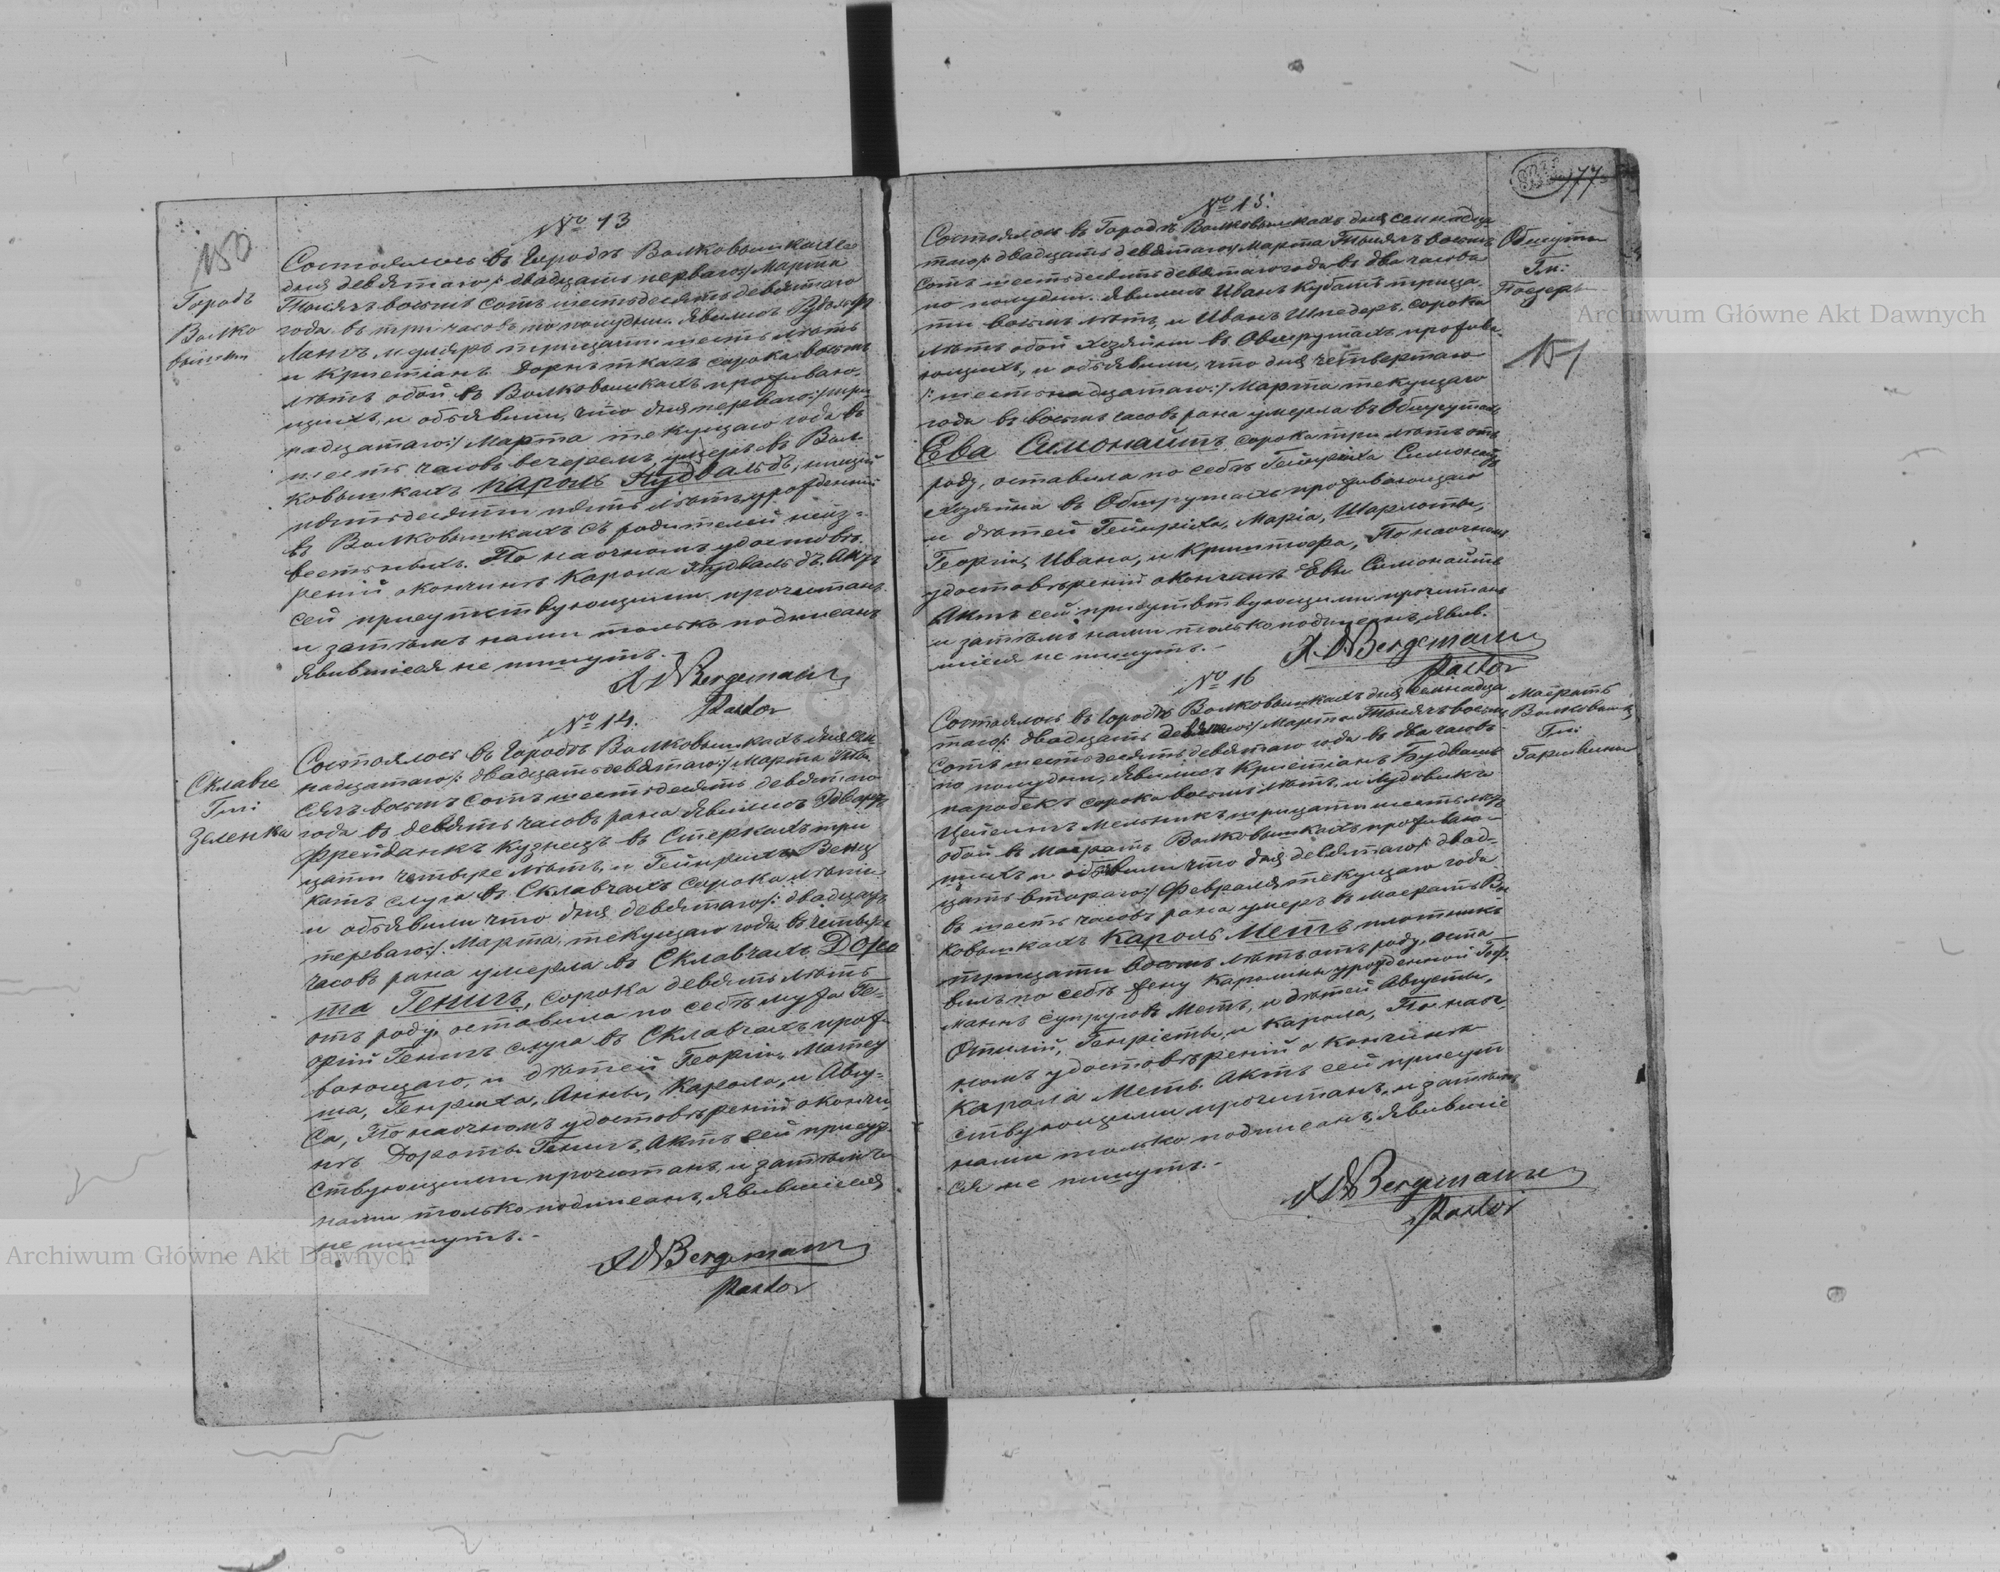 150
Городъ
Волко
вышки
№ 13
Состоялось въ Городѣ Волковышкахъ
дня девятаго /: двадцать перваго :/ Марта
Тысяча восемь сотъ шестьдесятъ девятаго
года въ три часовъ по полудни. Явились Рудольфъ
Лангъ мулляръ тридцати шесть лѣтъ
и Кристіанъ сорока восемь
лѣтъ обой въ Волковышкахъ прожываю-
щихъ, и объявили, что дня перваго :/ три
надцатаго :/ Марта текущаго года въ
шесть часовъ вечеремъ умеръ въ Вол-
ковышкахъ Кароль Кудвальдъ, нищій
пятьдесяти пять лѣтъ урожденный
въ Волковышкахъ съ родителей неиз-
вестныхъ. По наочномъ удостовѣ-
реніи о кончинѣ Карола Кудвальдъ, Актъ
сей присутствующимъ прочитанъ
и затѣмъ нами только подписанъ
Явившіеся не пишутъ.
Bergemann
Pastor
Склавче
Гм:
Зеленка
№ 14.
Состоялось въ Городѣ Волковышкахъ дня сем
надцатаго /: двадцать девятаго :/ Марта Ты-
сячъ восемь сотъ шестьдесятъ девятаго
года въ девять часовъ рана Явились Эдвардъ
Фрейданкъ Кузнецъ въ Стеркахъ три
цати четыре лѣтъ, и Гейнрихъ Венц
катъ слуга въ Склавчахъ сорока лѣтъ
и объявили что дня девятаго /: двадцать
перваго :/ Марта, текущаго года въ четыре
часовъ рана умерла въ Склавчахъ Доро
та Генигъ, сорока девять лѣтъ
отъ роду, оставила по себѣ мужа Ге-
оргій Генигъ слуга въ Склавчахъ прож-
вающаго, и дѣтей Георгія, Матеу
ша, Генриха, Анны, Карола, и Авгу-
са, По наочномъ удостовѣреніи о кончи
нѣ Дороты Генигъ, Актъ сей присут-
ствующимъ прочитанъ, и затѣмъ
нами только подписанъ, явившіеся
не пишутъ. -
Bergemann
Pastor
177
Обшруты
Гм:
151
№ 15.
Состоялось въ Городѣ Волковышкахъ дня семнадца
таго /: двадцать девятаго :/ Марта Тысячъ восемь
сотъ шестьдесятъ девятаго года въ два часовъ
по полудни. Явились Иванъ Кубатъ трица-
ти восемь лѣтъ, и Иванъ Шнедеръ, сорока
лѣтъ обой хозяйни въ Обшрутахъ прожива-
ющихъ, и объявили, что дня четвертаго
/: шестьнадцатаго :/ Марта текущаго
года въ восемь часовъ рана умерла въ Обшрутахъ
Ева Симонайтъ, сорока три лѣтъ отъ
роду, оставила по себѣ Гейнриха Симонайтъ
хозяйна въ Обшрутахъ проживающаго
и дѣтей Гейнриха, Марія, Шарлоты,
Георгія, Ивана, и Криштофа, По наочномъ
удостовѣреніи о кончинѣ Евы Симонайтъ
Актъ сей присутствующими прочитанъ
и затѣмъ нами только подписанъ, явив-
шіеся не пишутъ. -
Bergemann
Pastor
Маератъ
Волковышк
Гм:
№ 16
Состоялось въ Городѣ Волковышкахъ дня семнадца
таго /: двадцать девятаго :/ Марта Тысячъ восемь
сотъ шестьдесятъ девятаго года въ два часовъ
по полудни, Явились Кристіанъ Будвашъ
паробекъ сорока восемь лѣтъ, и Лудовикъ
мельникъ трицати шесть лѣтъ
обой въ Маератъ Волковышкахъ прожываю-
щихъ и объявили что дня девятаго /: двад-
цать втораго :/ Февраля текущаго года
въ шесть часовъ рана умеръ въ Маератъ Во
ковышкахъ Кароль Метъ плотникъ
тридцати восемь лѣтъ отъ роду, оста
вилъ по себѣ жену Каролины урожденной Гоф
манъ супруговъ Метъ, и дѣтей Августы,
Отиліи, Генріеты, и Карола, По наоч
номъ удостовѣреніи о кончинѣ
Карола Метъ Актъ сей присут
ствующими прочитанъ, и затѣмъ
нами только подписанъ, явившіе
ся не пишутъ. -
Bergemann
Pastor
Archiwum Główne Akt Dawnych
Archiwum Główne Akt Dawnych